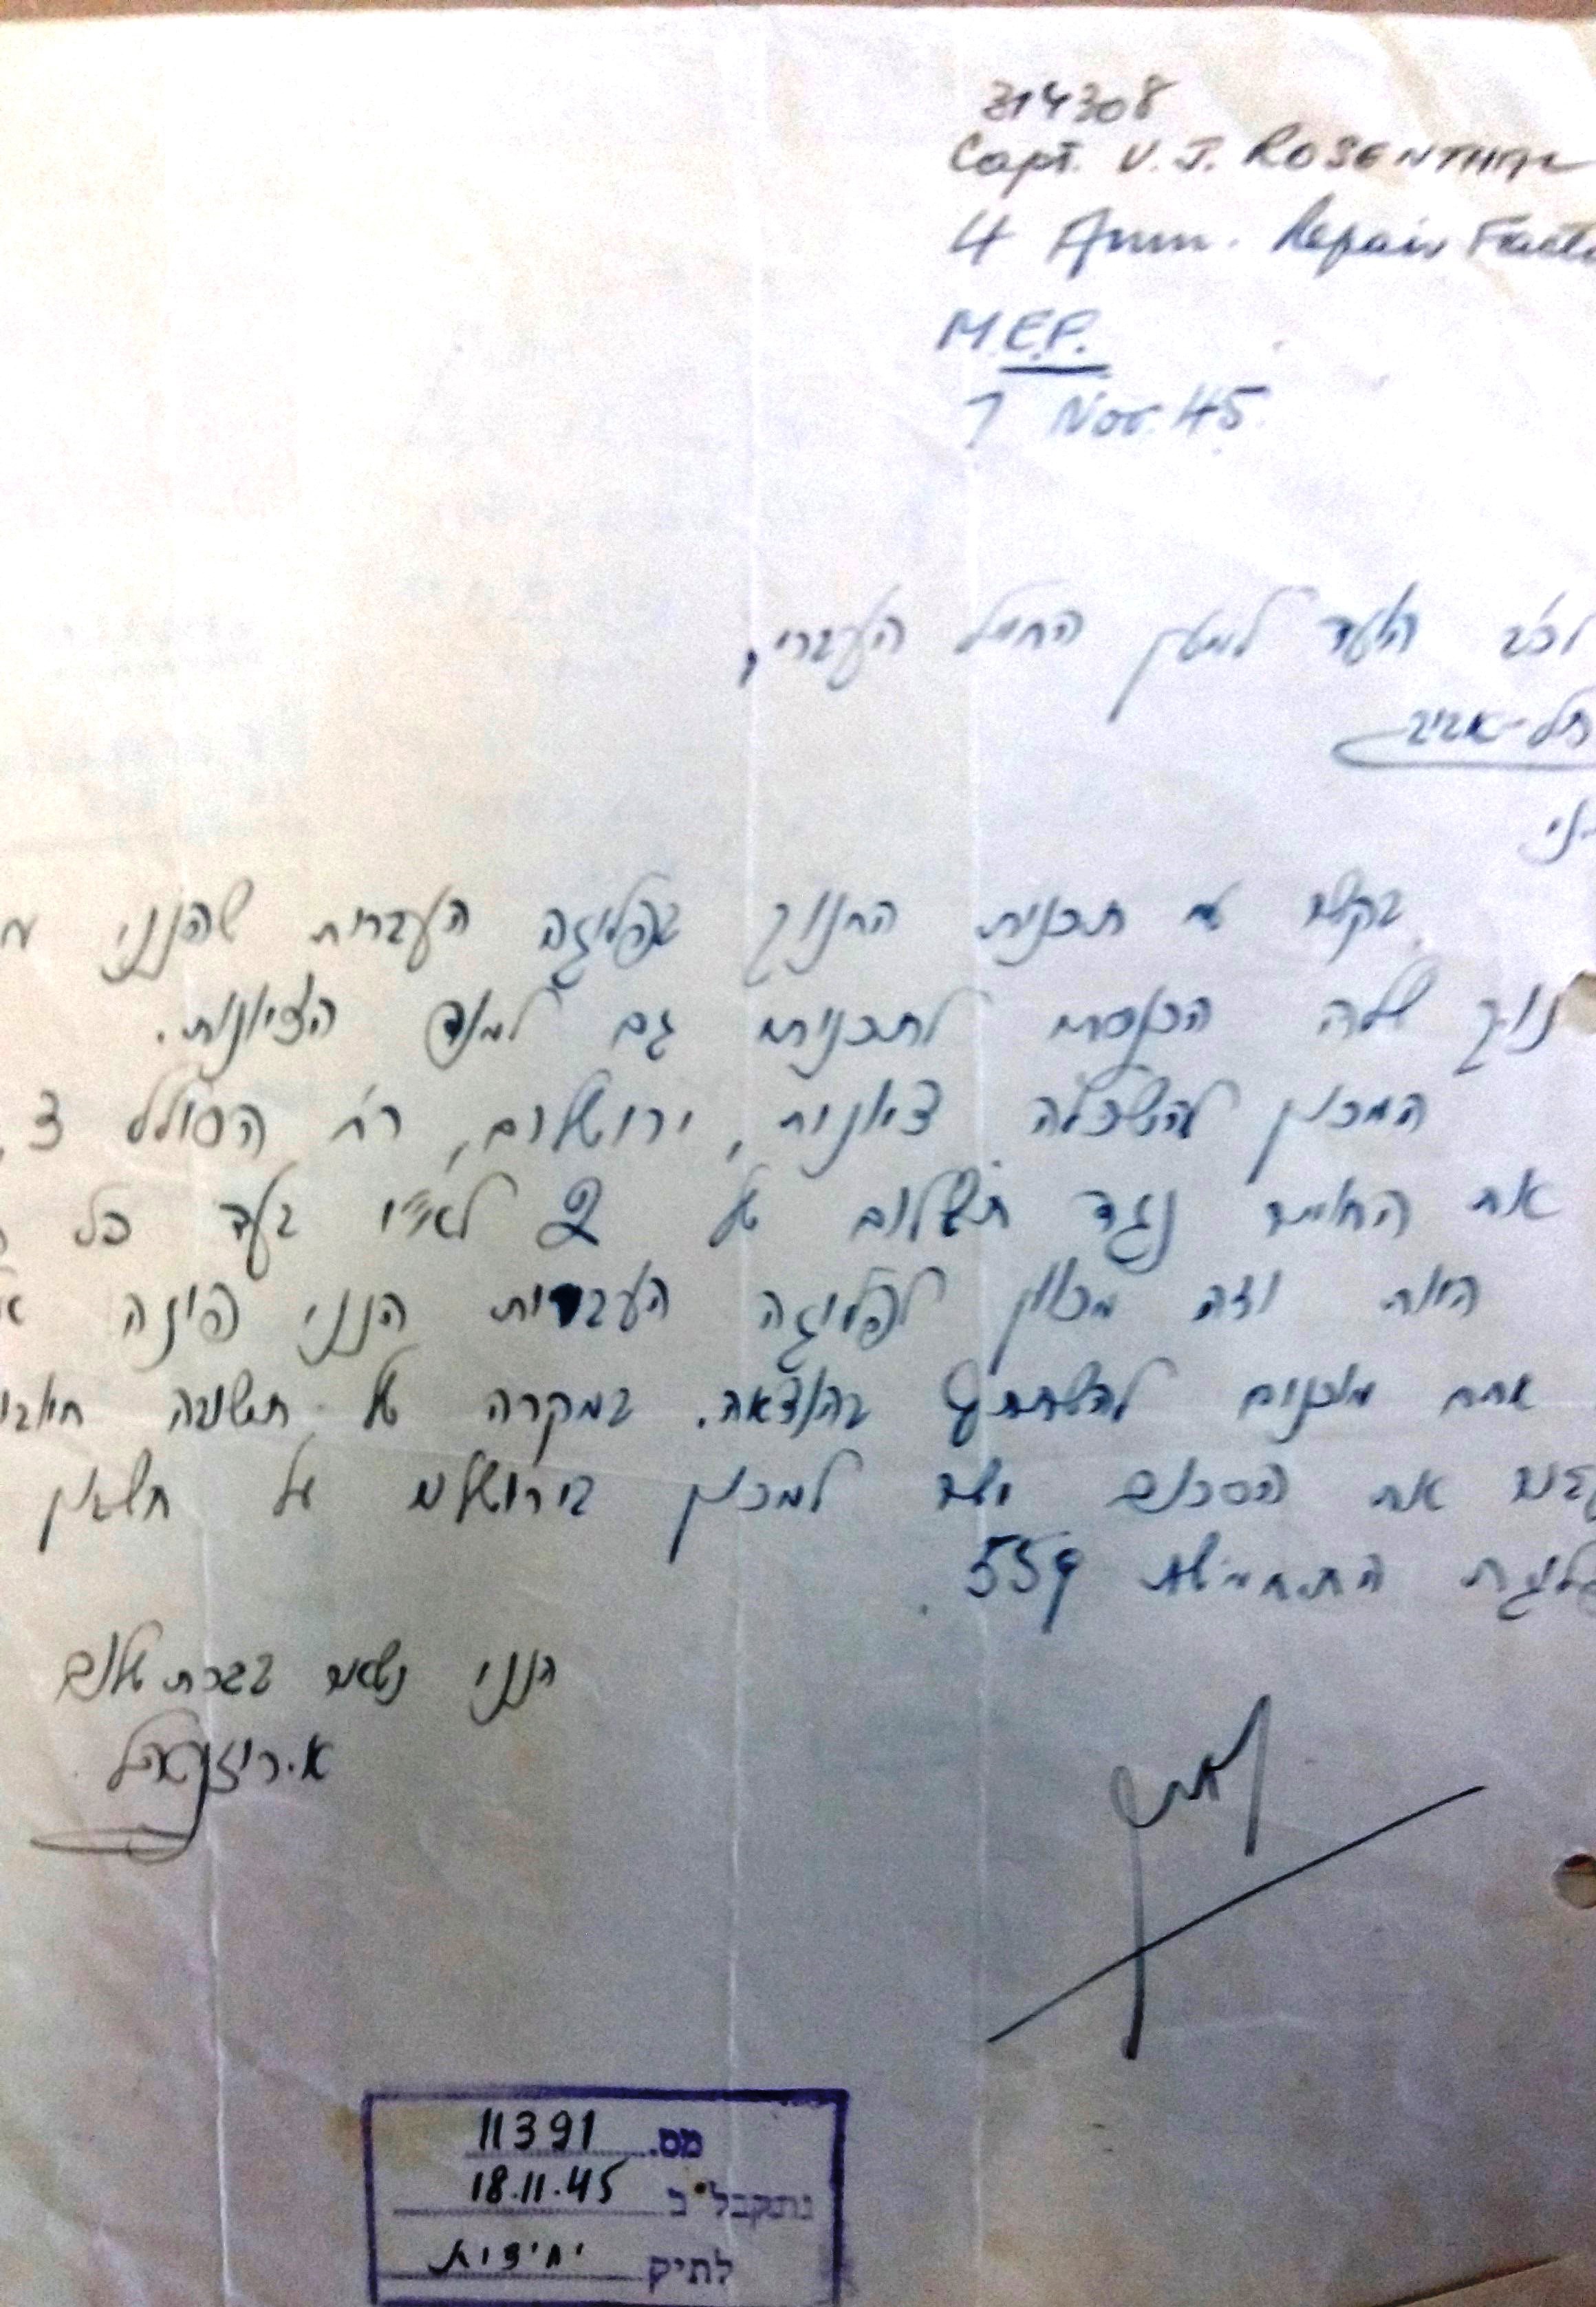 314308
Capt. V. J. ROSENTHAL
4 Amm. Repair Facto
M.E.F.
7 Nov. 45.
לכב' הועד למען החייל העברי,
תל-אביב
בקשר עם תכנית החנוך בפלוגה העברית שהנני מ
נוך שלה הכנסתי לתכניתי גם למוד הציונות.
המכון להשכלה ציונית, ירושלים, רח' הסולל 3,
את החומר נגד תשלום של 2 לא"י בעד כל
היות וזה מכוון לפלוגה העברית הנני פונה א
אתם מוכנים להשתתף בהוצאה. במקרה של תשובה חיובי
את הסכום ישר למכון בירושלים על חשבון
פלוגת התחמושת 559.
הנני נשאר בברכת שלום
א. רוזנטל
מס. 11391
נתקבל ב 18.11.45
לתיק יחידות